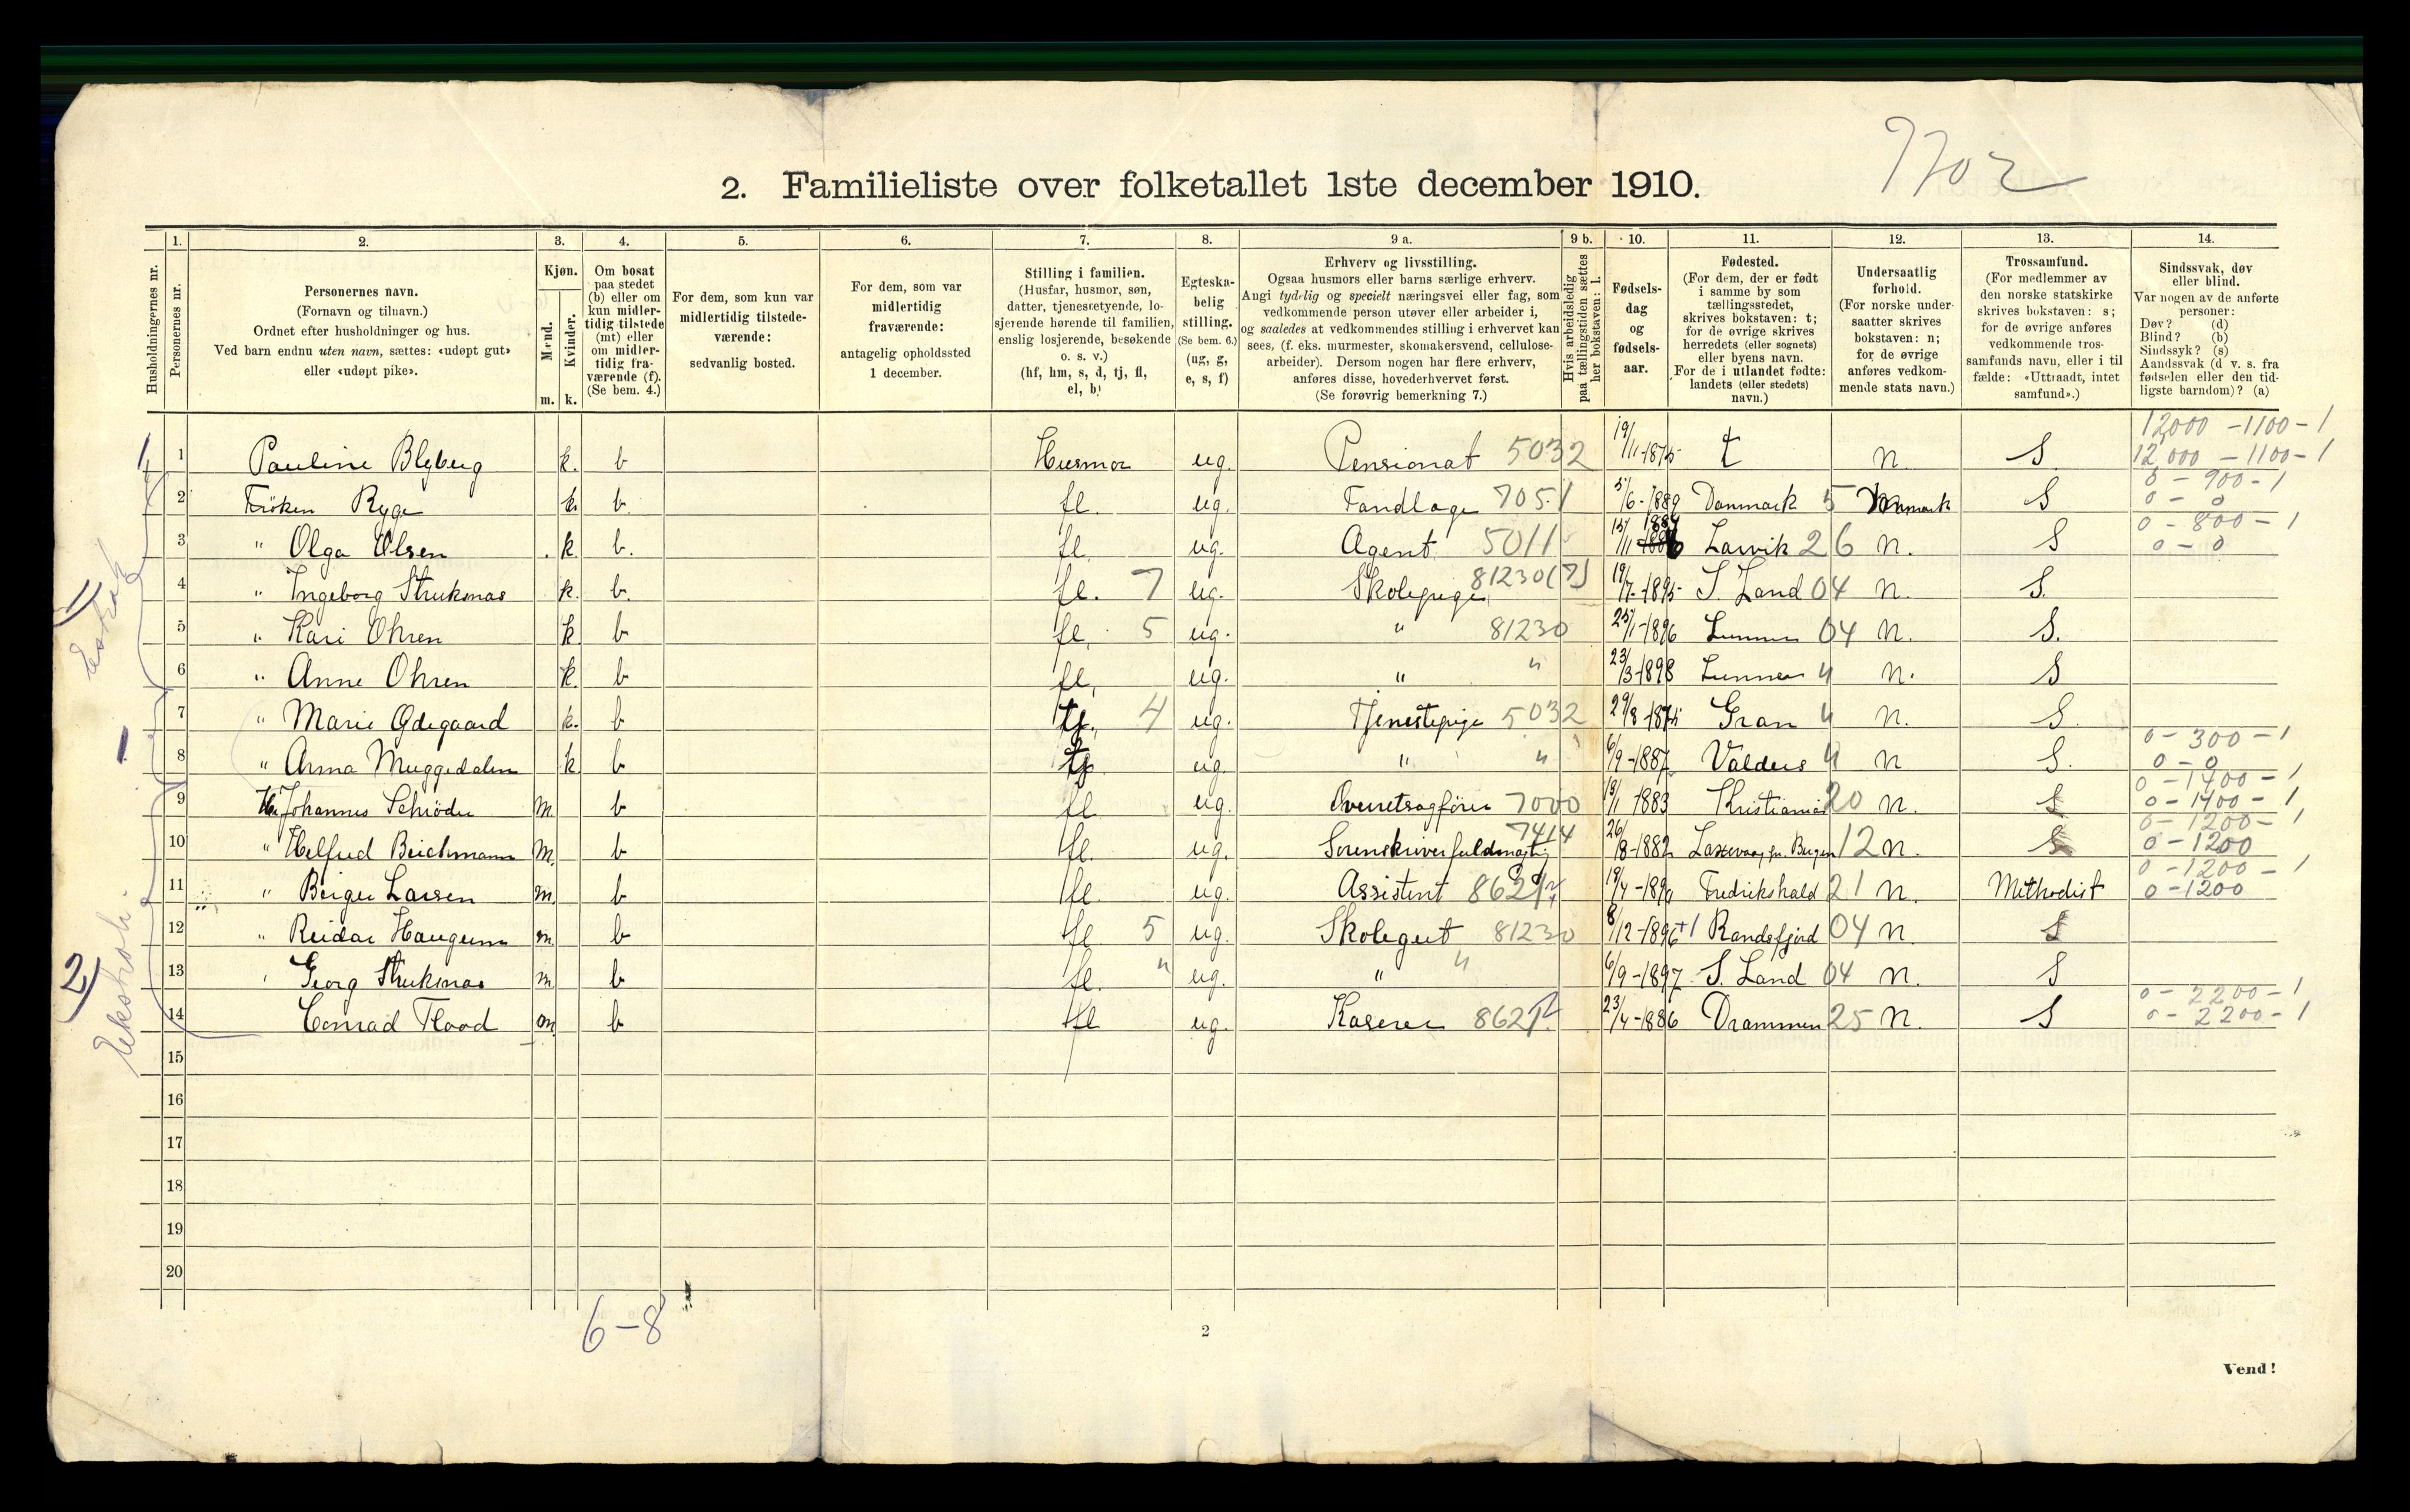 2. Familieliste over folketallet 1ste december 1910.
1702
Husholdningernes nr.
1. Personernes nr.
2. Personernes navn. (Fornavn og tilnavn.) Ordnet efter husholdninger og hus. Ved barn endnu uten navn, sættes: «udøpt gut» eller «udøpt pike».
3. Kjøn. Mænd. m. Kvinder. k.
4. Om bosat paa stedet (b) eller om kun midlertidig tilstede (mt) eller om midlertidig fraværende (f). (Se bem. 4.)
5. For dem, som kun var midlertidig tilstedeværende: sedvanlig bosted.
6. For dem, som var midlertidig fraværende: antagelig opholdssted 1 december.
7. Stilling i familien. (Husfar, husmor, søn, datter, tjenestetyende, losjerende hørende til familien, enslig losjerende, besøkende o. s. v.) (hf, hm, s, d, tj, fl, el, b)
8. Egteskabelig stilling. (Se bem. 6.) (ug, g, e, s, f)
9 a. Erhverv og livsstilling. Ogsaa husmors eller barns særlige erhverv. Angi tydelig og specielt næringsvei eller fag, som vedkommende person utøver eller arbeider i, og saaledes at vedkommendes stilling i erhvervet kan sees, (f. eks. murmester, skomakersvend, cellulosearbeider). Dersom nogen har flere erhverv, anføres disse, hovederhvervet først. (Se forøvrig bemerkning 7.)
9 b. Hvis arbeidsledig paa tællingstiden sættes her bokstaven: l.
10. Fødselsdag og fødselsaar.
11. Fødested. (For dem, der er født i samme by som tællingsstedet, skrives bokstaven: t; for de øvrige skrives herredets (eller sognets) eller byens navn. For de i utlandet fødte: landets (eller stedets) navn.)
12. Undersaatlig forhold. (For norske undersaatter skrives bokstaven: n; for de øvrige anføres vedkommende stats navn.)
13. Trossamfund. (For medlemmer av den norske statskirke skrives bokstaven: s; for de øvrige anføres vedkommende trossamfunds navn, eller i tilfælde: «Uttraadt, intet samfund».)
14. Sindssvak, døv eller blind. Var nogen av de anførte personer: Døv? (d) Blind? (b) Sindssyk? (s) Aandssvak (d v. s. fra fødselen eller den tidligste barndom)? (a)
12000 - 1100 - 1
1 Pauline Blyberg k. b Husmor ug. Pensionat 5032 19/11-1875 t n. S. 12,000 - 1100 - 1
0 - 900 - 1
2 Fröken Ryge k. b. fl. ug. Tandlæge 7051 5/6-1889 Danmark 5 Danmark S 0 - 0
0 - 800 - 1
3 " Olga Olsen k. b. fl. ug. Agent 5011 15/11 1884 Larvik 26 n. S 0 - 0
4 " Ingeborg Struksnæs k. b. fl. 7 ug. Skolepige 81230(7) 19/7-1895 S. Land 04 n. S.
5 " Kari Ohren k b fl. 5 ug. " 81230 25/1-1896 Lunner 04 n. S.
6 " Anne Ohren k. b fl. ug. " " 23/3-1898 Lunner " n. S
7 " Marie Ødegaard k. b tj. 4 ug. Tjenestepige 5032 29/8-1875 Gran " n. S.
0 - 300 - 1
8 " Anna Muggedalen k b tj. ug. " " 6/9-1887 Valders " n S. 0 - 0
0 - 1400 - 1
9 Hr. Johannes Schröder m. b fl ug. Overretssagförer 7000 13/1 1883 Kristiania 20 n. S 0 - 1400 - 1
0 - 1200 - 1
10 " Helfred Beichmann m. b fl. ug. Sorenskriverfuldmægtig 7414 26/8-1882 Laxevaag pr. Bergen 12 n. S 0 - 1200
0 - 1200 - 1
11 " Birger Larsen m. b fl. ug. Assistent 8621 19/4-1890 Fredrikshald 21 n. Methodist 0 - 1200
12 " Reidar Haugerud m b fl 5 ug. Skolegut 81230 8/12-1896 +1 Randsfjord 04 n. S
13 " Georg Struksnæs m. b fl. " ug. " " 6/9-1897 S. Land 04 n. S
0 - 2200 - 1
14 Conrad Flood m b fl ug. Kaserer 8621 23/4-1886 Drammen 25 n. S 0 - 2200 - 1
15
16
17
18
19
20
1
2
6-8
2
Vend!